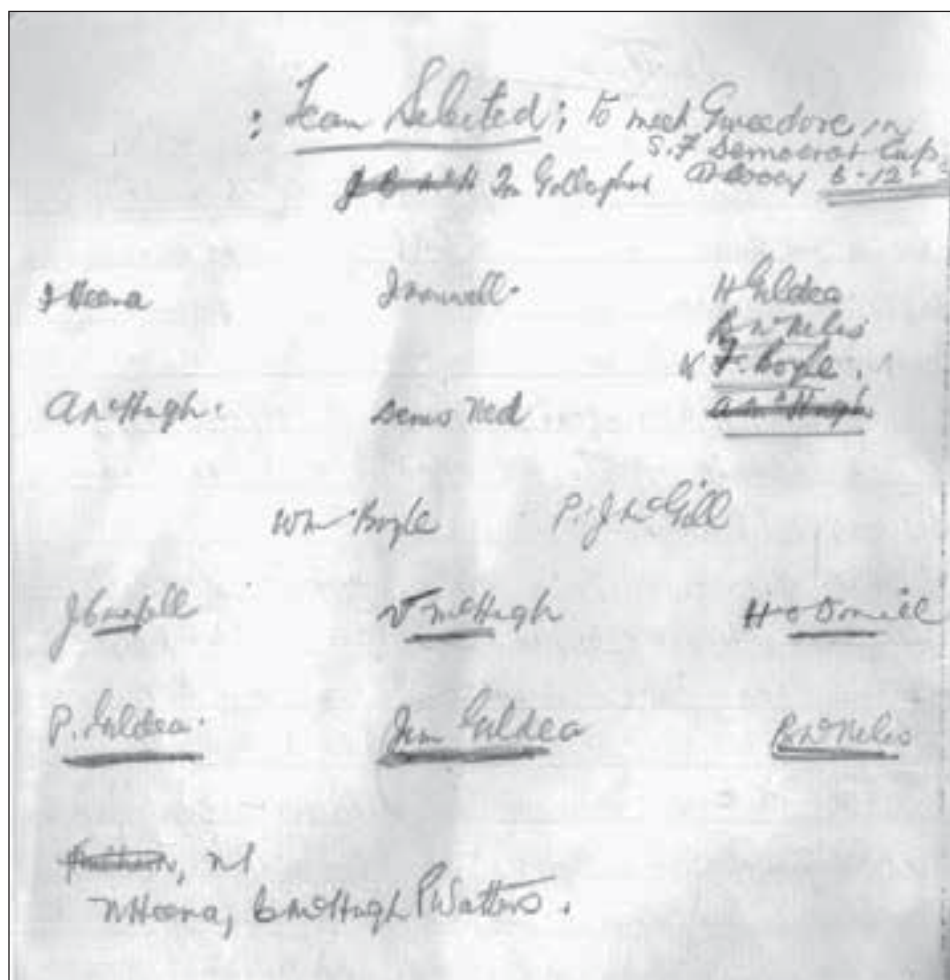 : Team Selected : to meet Gweedore in
S.F Democrat Cup
Jn Gallagher 6-12
J Heena J Maxwell. H Gildea
B McNelis
F. Boyle.
A McHugh. Denis Ned A McHugh
Wm Boyle P. J McGill
J Campbell V McHugh H O Donnell
P. Gildea. Jim Gildea B McNelis
N Heena, C McHugh P Watters.